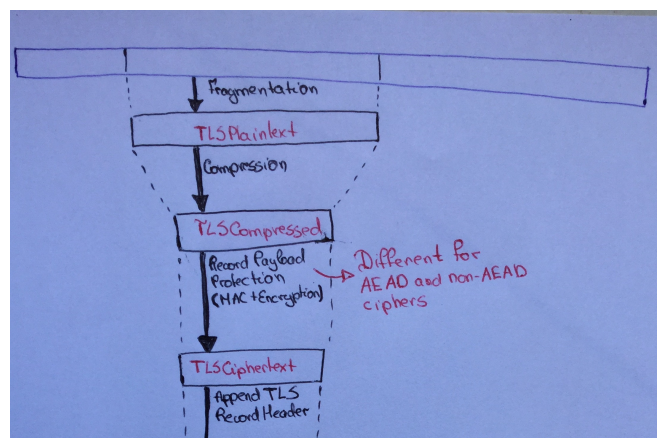 Fragmentation
TLSPlaintext
Compression
TLSCompressed
Record Payload
Protection
(MAC+Encryption)
Different for
AEAD and non-AEAD
ciphers
TLSCiphertext
Append TLS
Record Header